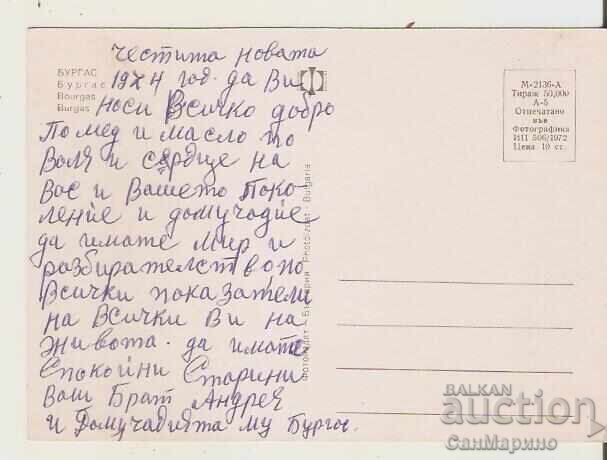 БУРГАС
Бургас
Bourgas
Burgas
Честита новата
1974 год. да Ви
носи Всичко добро
По мед и масло по
Воля и сърдце на
Вас и Вашето Поко-
ление и домучадие
да имате мир и
разбирателство по
Всички показатели
на Всички Ви на
живота. да имате
Спокойни Старини
Ваш Брат Андрея
и Домучадията му Бургас.
Фотоиздат – България Photoizdat – Bulgaria
М-2136-А
Тираж 50,000
А-5
Отпечатано
във
Фотографика
ИП 506/1972
Цена 10 ст.
BALKAN
auction
СанМарино